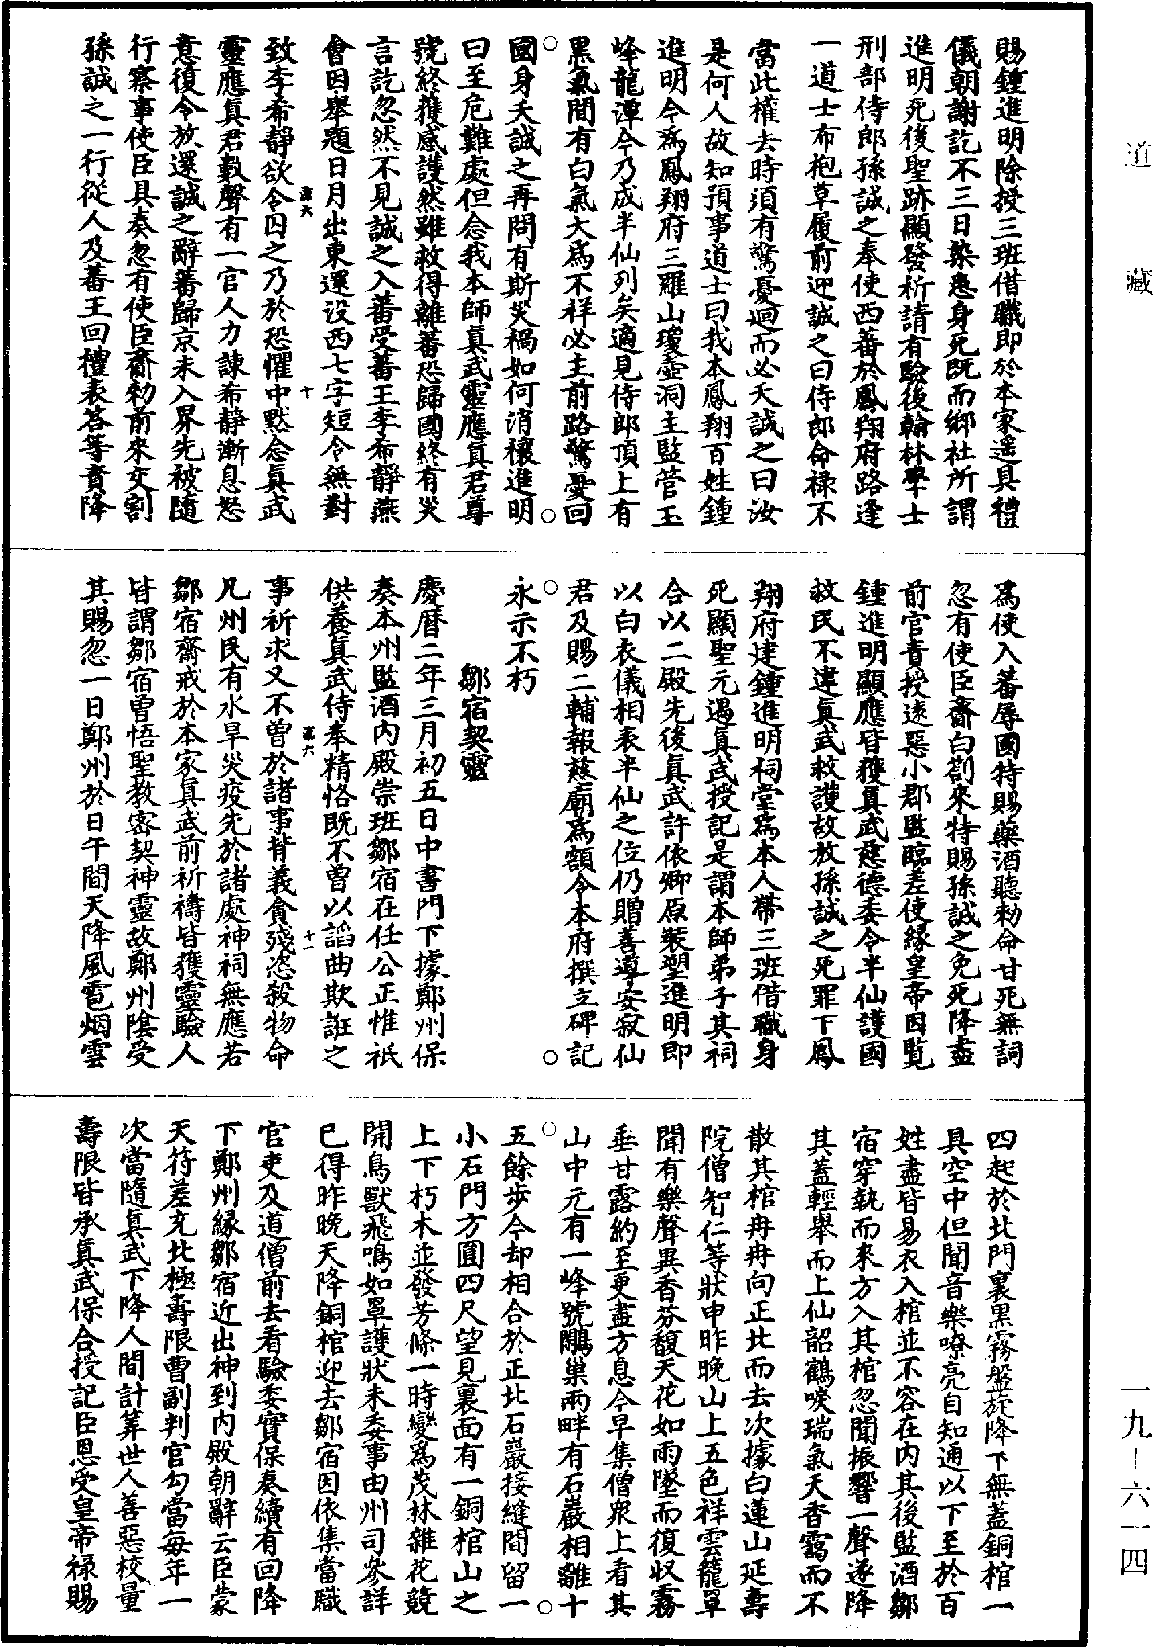 賜鍾進明除授三班借職即於本家遥具禮
儀朝謝訖不三日染患身死既而鄉社所謂
進明死後聖跡顯發祈請有驗後翰林學士
刑部侍郎孫誠之奉使西蕃於鳳翔府路逢
一道士布抱草履前迎誠之曰侍郎命禄不
當此權去時須有驚憂迴而必夭誠之曰汝
是何人故知預事道士曰我本鳳翔百姓鍾
進明今為鳳翔府三羅山瓊壺洞主監管玉
峰龍潭今乃成半仙列矣適見侍郎頂上有
黑氣間有白氣大為不祥必主前路驚憂回
國身夭誠之再問有斯災禍如何消禳進明
曰至危難處但念我本師真武靈應真君尊
號終獲感護然雖救得離蕃恐歸國終有災
言訖忽然不見誠之入蕃受蕃王李希靜燕
會因舉題日月出東還設西七字短令無對
致李希靜欲令囚之乃於恐懼中默念真武
靈應真君數聲有一官人力諫希靜漸息怒
意復令放還誠之辭蕃歸京未入界先被隨
行察事使臣具奏忽有使臣齎勑前來交割
孫誠之一行從人及蕃王回禮表荅等責降
為使入蕃辱國特賜藥酒聽勑命甘死無詞
忽有使臣齎白劄來特賜孫誠之免死降盡
前官責授遠惡小郡監臨差使緣皇帝因覧
鍾進明顯應皆獲真武慈德委令半仙護國
救民不違真武救護故放孫誠之死罪下鳳
翔府建鍾進明祠堂為本人帶三班借職身
死顯聖元遇真武授記是謂本師弟子其祠
合以二殿先後真武許依卿原裝塑進明即
以白衣儀相表半仙之位仍贈善導安寂仙
君及賜二輔報慈廟為額令本府撰立碑記
永示不朽
鄒宿契靈
慶曆二年三月初五日中書門下據鄭州保
奏本州監酒内殿崇班鄒宿在任公正惟祇
供養真武侍奉精恪既不曾以謟曲欺誑之
事祈求又不曾於諸事背義貪殘恣殺物命
凡州民有水旱災疫先於諸處神祠無應若
鄒宿齋戒於本家真武前祈禱皆獲靈驗人
皆謂鄒宿曾悟聖教密契神靈故鄭州陰受
其賜忽一日鄭州於日午間天降風雹烟雲
四起於北門裏黑霧盤旋降下無蓋銅棺一
具空中但聞音樂嘹亮自知通以下至於百
姓盡皆易衣入棺並不容在内其後監酒鄒
宿穿執而來方入其棺忽聞振響一聲遂降
其蓋輕舉而上仙韶鶴唳瑞氣天香靄而不
散其棺冉冉向正北而去次據白蓮山延壽
院僧智仁等狀申昨晚山上五色祥雲籠罩
聞有樂聲異香芬馥天花如雨墜而復収霧
垂甘露約至更盡方息今早集僧眾上看其
山中元有一峰號鵰巢兩畔有石巖相離十
五餘步今却相合於正北石巖接縫間留一
小石門方圓四尺望見裏面有一銅棺山之
上下朽木並發芳條一時變為茂林雜花競
開鳥獸飛鳴如罩護狀未委事由州司參詳
已得昨晚天降銅棺迎去鄒宿因依集當職
官吏及道僧前去看驗委實保奏續有回降
下鄭州緣鄒宿近出神到内殿朝辭云臣蒙
天符差充北極壽限曹副判官勾當每年一
次當隨真武下降人間計算世人善惡校量
壽限皆承真武保合授記臣恩受皇帝禄賜
道藏
一九-六一四